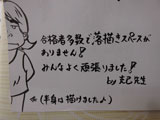 合格者多数で落描きスペースが
ありません!
みんなよく頑張りました!
by 克己先生
※(半身は描けましたよ)